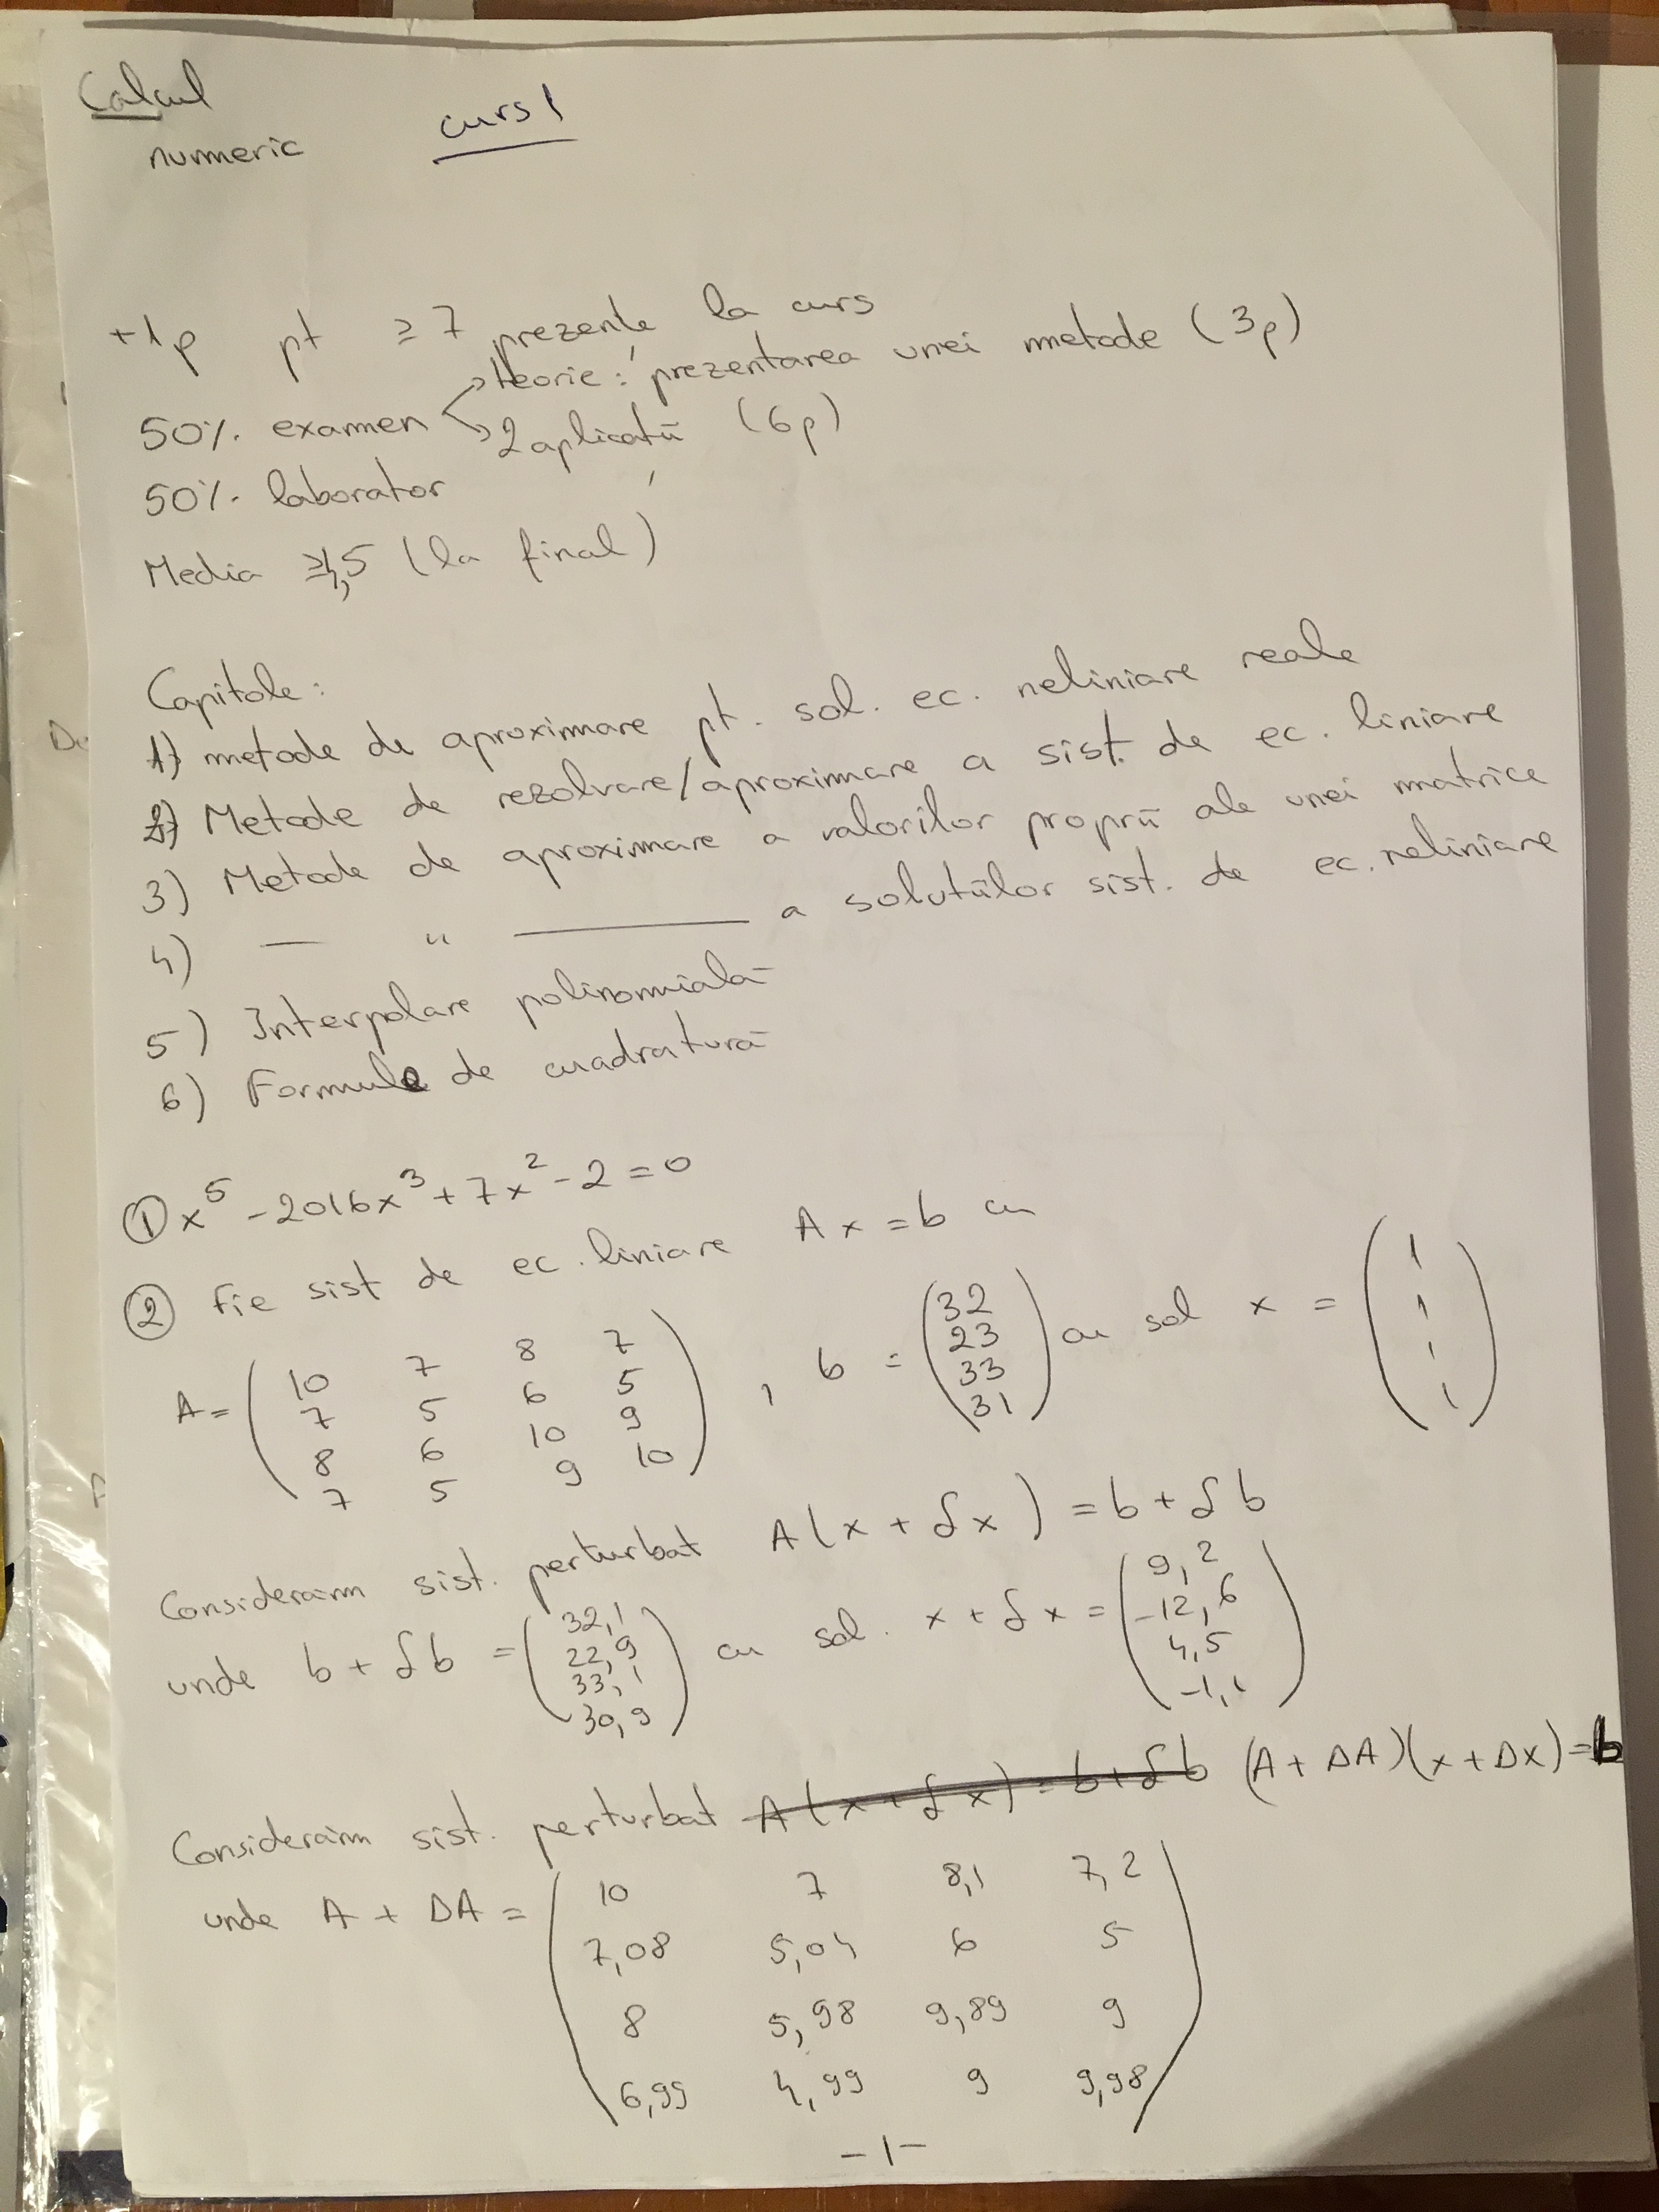 Calcul
numeric
curs 1
+1p pt ≥ 7 prezențe la curs
50% examen → teorie: prezentarea unei metode (3p)
→ 2 aplicații (6p)
50% laborator
Media ≥4,5 (la final)
Capitole:
1) metode de aproximare pt. sol. ec. neliniare reale
2) Metode de rezolvare/aproximare a sist. de ec. liniare
3) Metode de aproximare a valorilor proprii ale unei matrice
4) — " — a soluțiilor sist. de ec. neliniare
5) Interpolare polinomială
6) Formule de cuadratură
① x⁵ - 2016x³ + 7x² - 2 = 0
② Fie sist de ec. liniare Ax = b cu
A = ( 10 7 8 7
7 5 6 5
8 6 10 9
7 5 9 10 ) , b = ( 32
23
33
31 ) cu sol x = ( 1
1
1
1 )
Considerăm sist. perturbat A(x + δx) = b + δb
unde b + δb = ( 32,1
22,9
33,1
30,9 ) cu sol. x + δx = ( 9,2
-12,6
4,5
-1,1 )
Considerăm sist. perturbat A(x + δx) = b + δb (A + ΔA)(x + Δx) = b
unde A + ΔA = ( 10 7 8,1 7,2
7,08 5,04 6 5
8 5,98 9,89 9
6,99 4,99 9 9,98 )
-1-